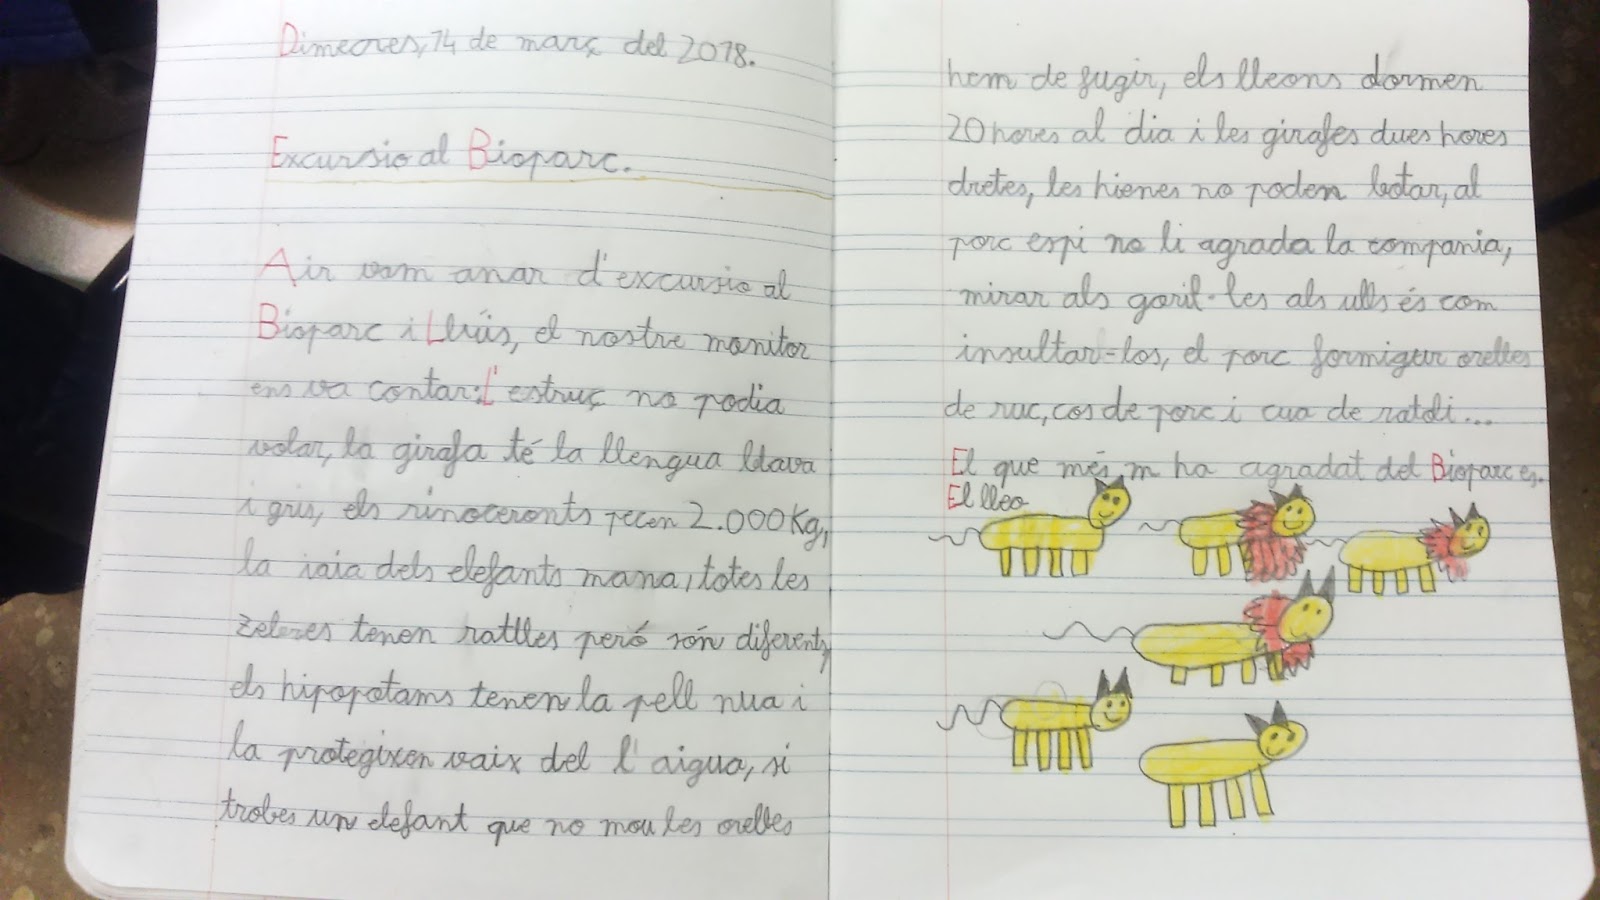 Dimecres, 14 de març del 2018.
Excursio al Bioparc.
Air vam anar d'excursio al
Bioparc i Lluís, el nostre monitor
ens va contar: L'estruç no podia
volar, la girafa té la llengua blava
i gris, els rinoceronts pecen 2.000Kg,
la iaia dels elefants mana, totes les
zebres tenen ratlles peró són diferents,
els hipopotams tenen la pell nua i
la protegixen vaix del l'aigua, si
trobes un elefant que no mou les orelles
hem de fugir, els lleons dormen
20 hores al dia i les girafes dues hores
dretes, les hienes no poden botar, al
porc espi no li agrada la compania,
mirar als goril·les als ulls és com
insultar-los, el porc formigur orelles
de ruc, cos de porc i cua de ratoli...
El que més m ha agradat del Bioparc es.
El lleo